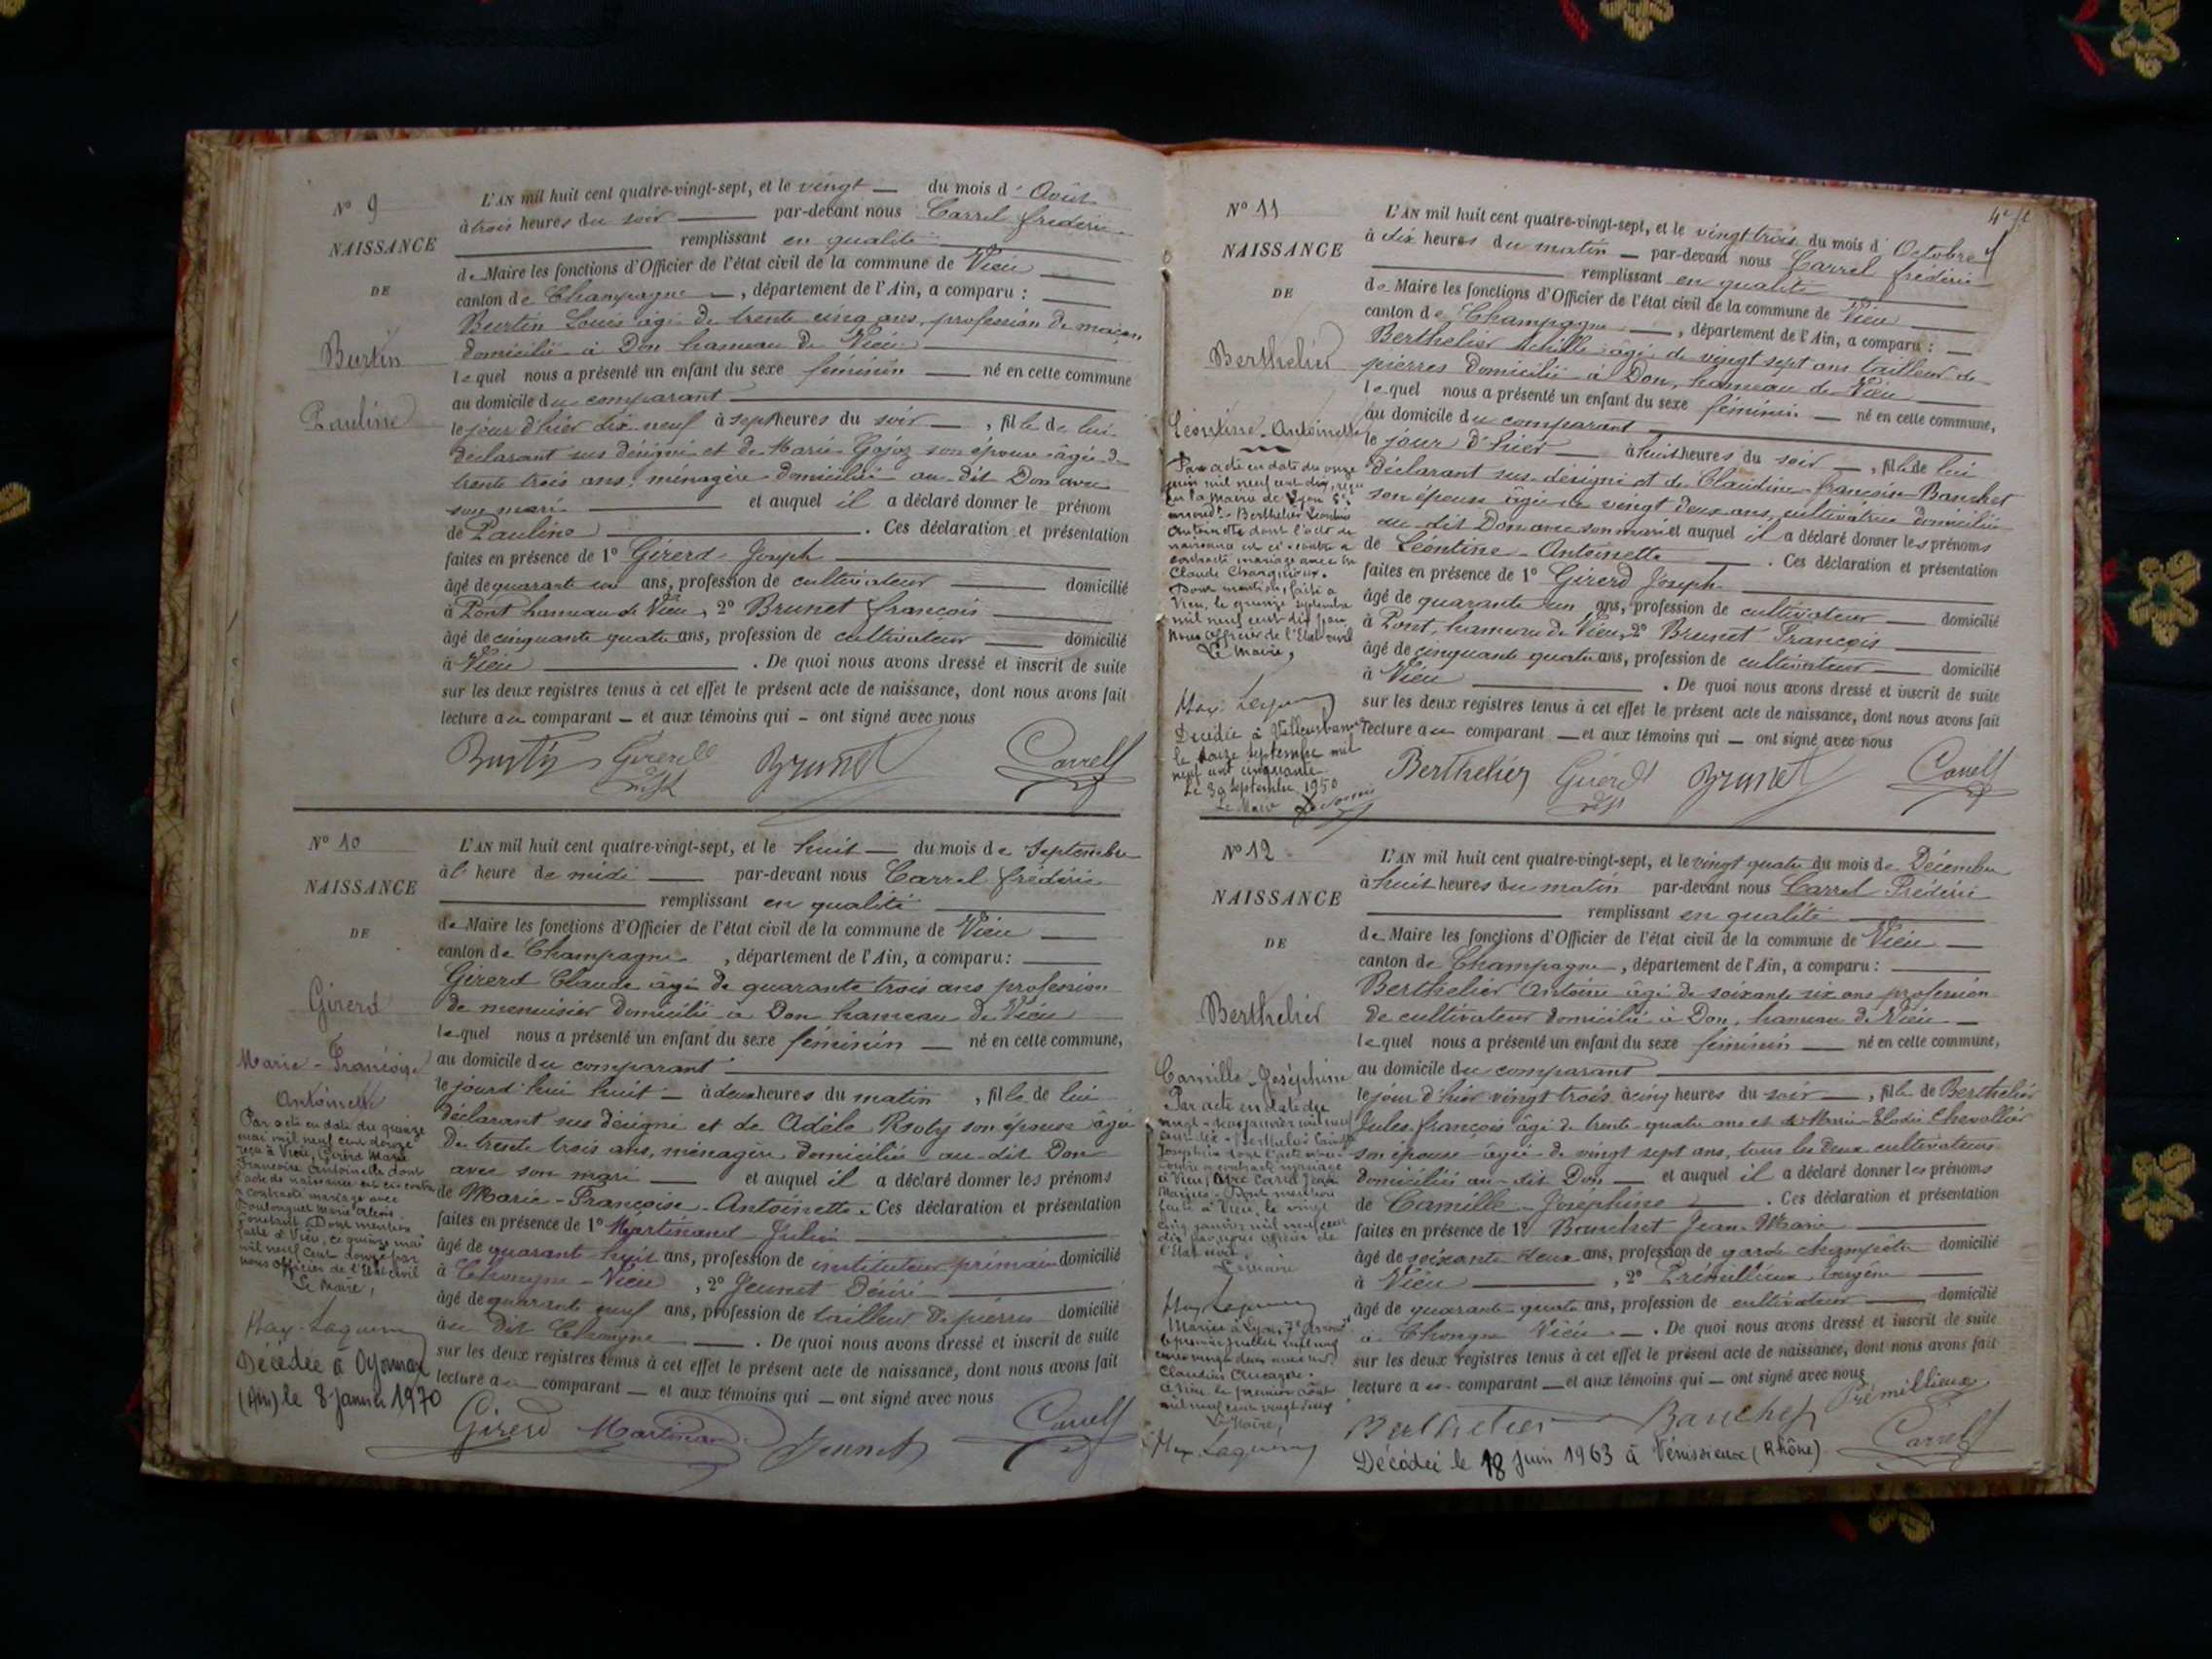 N° 9
NAISSANCE
DE
Burtin
Pauline
L'AN mil huit cent quatre-vingt-sept, et le vingt — du mois d'Août
à trois heures du soir — par-devant nous Carrel frédéric
remplissant en qualité
de Maire les fonctions d'Officier de l'état civil de la commune de Vieu
canton de Champagne —, département de l'Ain, a comparu :
Burtin Louis âgé de trente cinq ans, profession de maçon
domicilié à Don hameau de Vieu
lequel nous a présenté un enfant du sexe féminin — né en cette commune
au domicile du comparant
le jour d'hier dix neuf à sept heures du soir —, fille de lui
déclarant sus désigné et de Marie Gojoz son épouse âgée de
trente trois ans, ménagère domiciliée au-dit Don avec
son mari — et auquel il a déclaré donner le prénom
de Pauline — . Ces déclaration et présentation
faites en présence de 1° Girerd Joseph
âgé de quarante un ans, profession de cultivateur — domicilié
à Pont hameau de Vieu, 2° Brunet françois
âgé de cinquante quatre ans, profession de cultivateur — domicilié
à Vieu — . De quoi nous avons dressé et inscrit de suite
sur les deux registres tenus à cet effet le présent acte de naissance, dont nous avons fait
lecture au comparant — et aux témoins qui — ont signé avec nous
Burtin Girerd Brunet Carrel
N° 10
NAISSANCE
DE
Girerd
Marie-Françoise
Antoinette
Par acte en date du quinze
mai mil neuf cent douze
reçu à Vieu, Girerd Marie
Françoise Antoinette dont
l'acte de naissance est ci-contre
a contracté mariage avec
Marie Alexis
Dont mention
faite à Vieu, ce quinze mai
mil neuf cent douze par
nous officier de l'Etat civil
Le Maire,
Décédée à Oyonnax
(Ain) le 8 janvier 1970
L'AN mil huit cent quatre-vingt-sept, et le huit — du mois de Septembre
à l'heure de midi — par-devant nous Carrel frédéric
remplissant en qualité
de Maire les fonctions d'Officier de l'état civil de la commune de Vieu
canton de Champagne, département de l'Ain, a comparu :
Girerd Claude âgé de quarante trois ans profession
de menuisier domicilié à Don hameau de Vieu
lequel nous a présenté un enfant du sexe féminin — né en cette commune,
au domicile du comparant
le jourd'hui huit — à deux heures du matin, fille de lui
déclarant sus désigné et de Adèle son épouse âgée
de trente trois ans, ménagère domiciliée au-dit Don
avec son mari — et auquel il a déclaré donner les prénoms
de Marie-Françoise-Antoinette. Ces déclaration et présentation
faites en présence de 1° Martinand Julien
âgé de quarante huit ans, profession de instituteur primaire domicilié
à Chongne-Vieu, 2° Jeunet Désiré
âgé de quarante neuf ans, profession de tailleur de pierres domicilié
au dit Chongne — . De quoi nous avons dressé et inscrit de suite
sur les deux registres tenus à cet effet le présent acte de naissance, dont nous avons fait
lecture au comparant — et aux témoins qui — ont signé avec nous
Girerd Martinand Jeunet Carrel
N° 11
NAISSANCE
DE
Berthelier
Léontine-Antoinette
Par acte en date du onze
juin mil neuf cent dix, reçu
en la Mairie de Lyon 5e
arrondt. Berthelier Léontine
Antoinette dont l'acte de
naissance est ci-contre a
contracté mariage avec
Claude
Dont mention, faite à
Vieu, le quinze septembre
mil neuf cent dix par
nous officier de l'Etat civil
Le Maire,
Décédée à Villeurbanne
le douze septembre mil
neuf cent cinquante
Le 30 septembre 1950
Le Maire
L'AN mil huit cent quatre-vingt-sept, et le vingt trois du mois d'Octobre
à dix heures du matin — par-devant nous Carrel frédéric
remplissant en qualité
de Maire les fonctions d'Officier de l'état civil de la commune de Vieu
canton de Champagne —, département de l'Ain, a comparu :
Berthelier Achille âgé de vingt sept ans tailleur de
pierres domicilié à Don, hameau de Vieu
lequel nous a présenté un enfant du sexe féminin — né en cette commune,
au domicile du comparant
le jour d'hier — à huit heures du soir —, fille de lui
déclarant sus-désigné et de Claudine-françoise Banchet
son épouse âgée de vingt deux ans, cultivatrice domiciliée
au dit Don avec son mari et auquel il a déclaré donner les prénoms
de Léontine-Antoinette — . Ces déclaration et présentation
faites en présence de 1° Girerd Joseph
âgé de quarante un ans, profession de cultivateur — domicilié
à Pont, hameau de Vieu, 2° Brunet François
âgé de cinquante quatre ans, profession de cultivateur — domicilié
à Vieu — . De quoi nous avons dressé et inscrit de suite
sur les deux registres tenus à cet effet le présent acte de naissance, dont nous avons fait
lecture au comparant — et aux témoins qui — ont signé avec nous
Berthelier Girerd Brunet Carrel
N° 12
NAISSANCE
DE
Berthelier
Camille-Joséphine
Par acte en date du
Berthelier Camille
Joséphine dont l'acte
a contracté mariage
à Vieu, avec
Dont mention
faite à Vieu, le vingt
cinq janvier mil neuf cent
dix par nous officier de
l'Etat civil
Le Maire
Mariée à Lyon, 7e arrondt
le premier juillet mil neuf
cent vingt deux avec
Claudius
à Vieu le premier août
mil neuf cent vingt deux
Le Maire,
L'AN mil huit cent quatre-vingt-sept, et le vingt quatre du mois de Décembre
à huit heures du matin par-devant nous Carrel Frédéric
remplissant en qualité
de Maire les fonctions d'Officier de l'état civil de la commune de Vieu
canton de Champagne, département de l'Ain, a comparu :
Berthelier Antoine âgé de soixante six ans profession
de cultivateur domicilié à Don, hameau de Vieu
lequel nous a présenté un enfant du sexe féminin — né en cette commune,
au domicile du comparant
le jour d'hier vingt trois à cinq heures du soir —, fille de Berthelier
Jules françois âgé de trente quatre ans et de Marie Elodie Chevallier
son épouse âgée de vingt sept ans, tous les deux cultivateurs
domiciliés au-dit Don — et auquel il a déclaré donner les prénoms
de Camille-Joséphine — . Ces déclaration et présentation
faites en présence de 1° Banchet Jean-Marie
âgé de soixante deux ans, profession de garde champêtre domicilié
à Vieu —, 2° Prémillieux Eugène
âgé de quarante-quatre ans, profession de cultivateur — domicilié
à Chongne Vieu — . De quoi nous avons dressé et inscrit de suite
sur les deux registres tenus à cet effet le présent acte de naissance, dont nous avons fait
lecture au comparant — et aux témoins qui — ont signé avec nous
Berthelier Banchet Prémillieux
Carrel
Décédée le 18 juin 1963 à Vénissieux (Rhône)